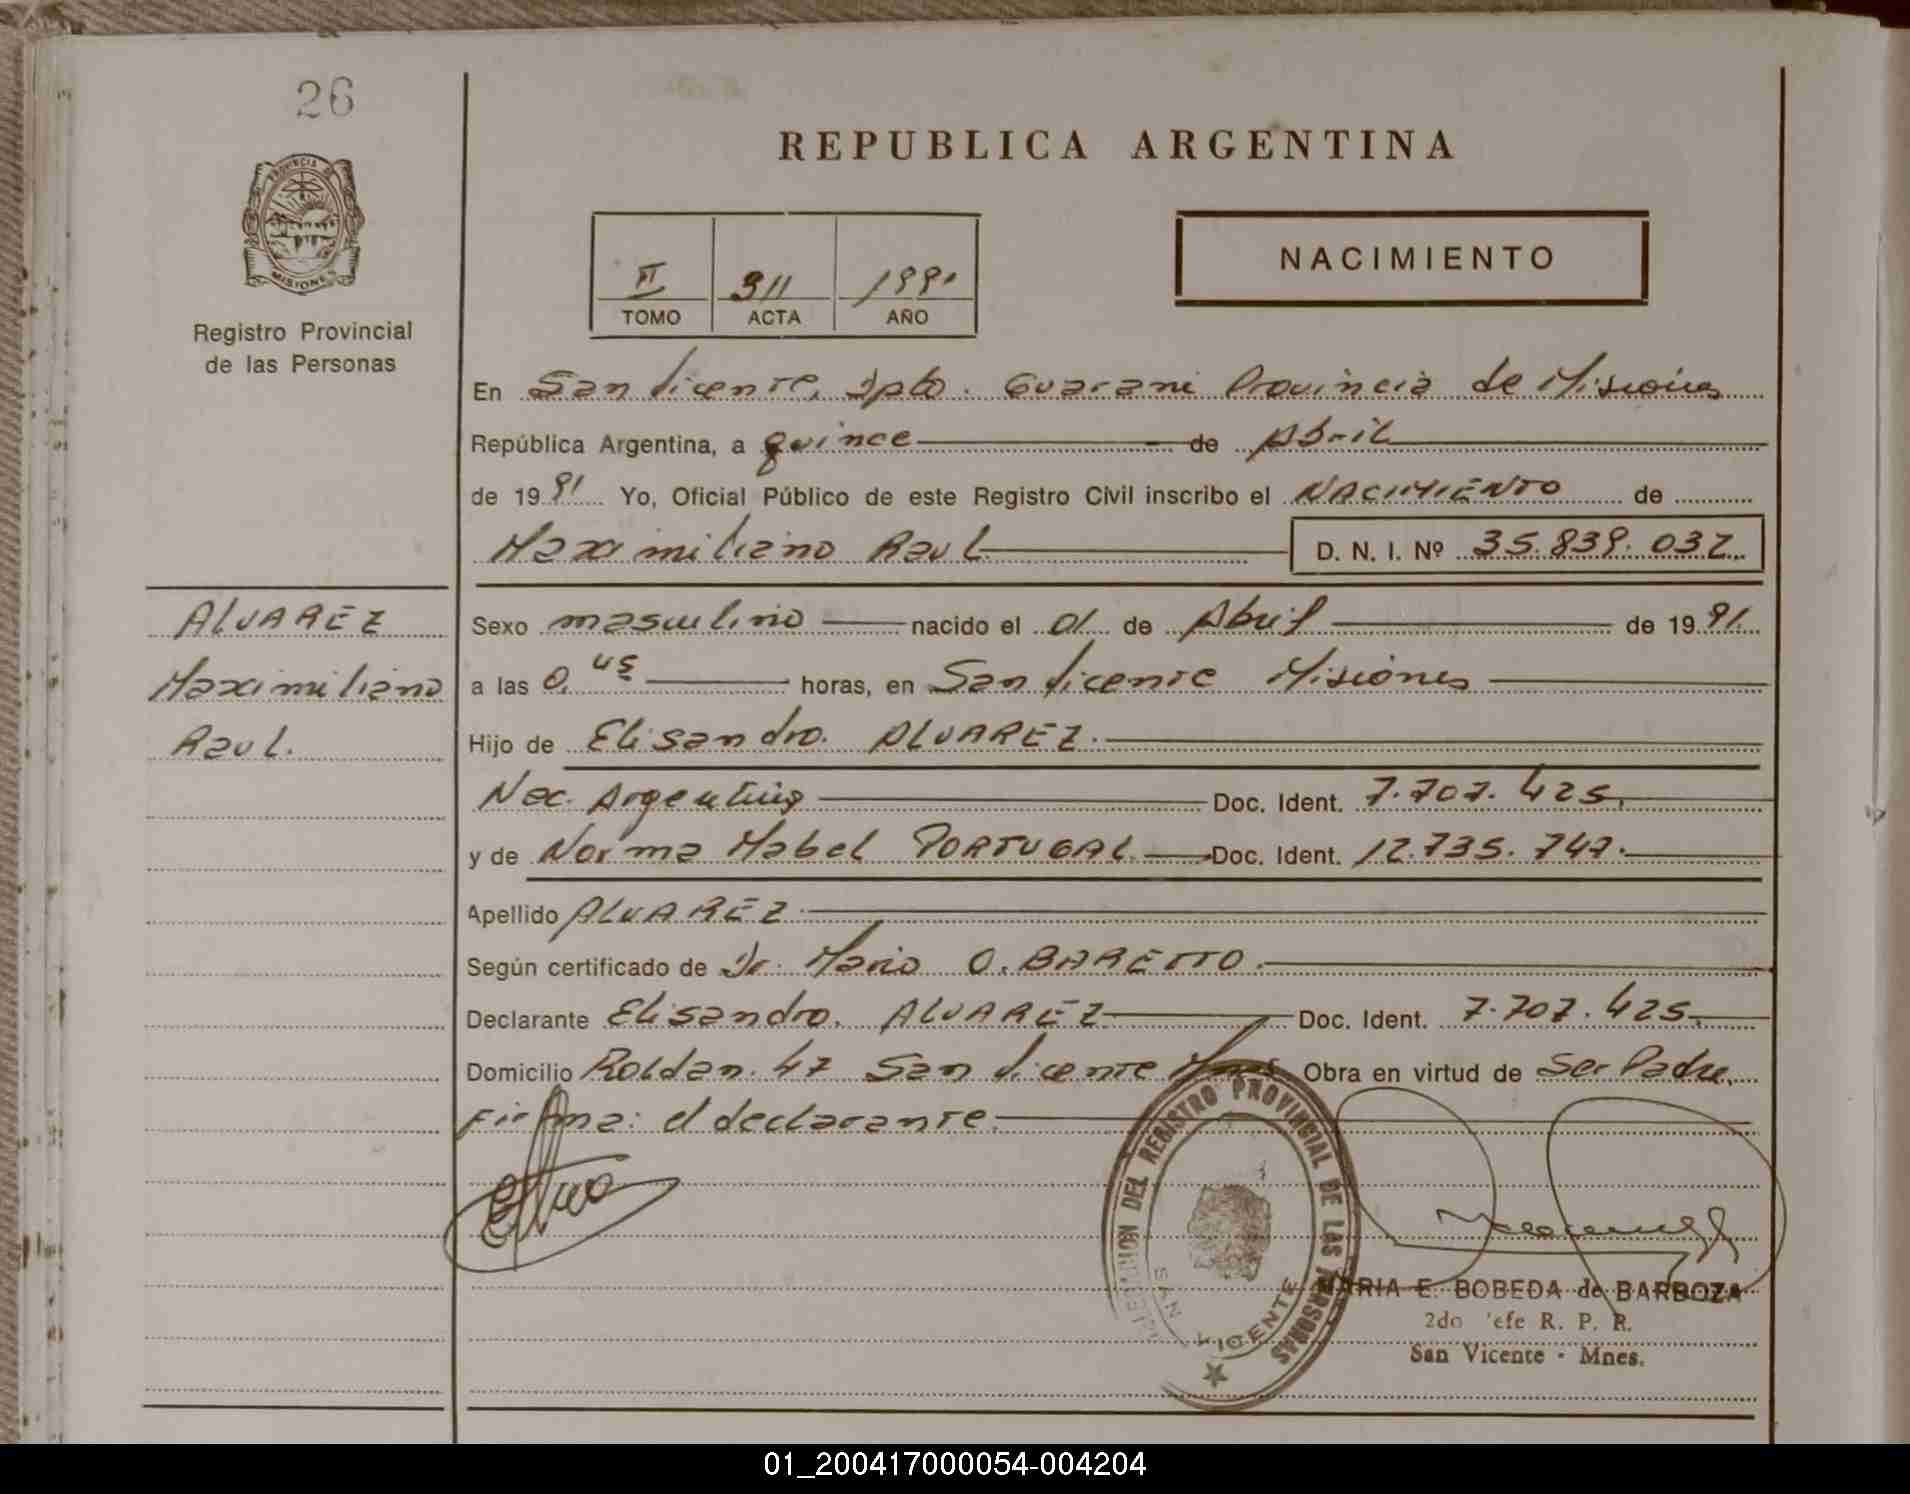 26
REPUBLICA ARGENTINA
PROVINCIA DE
MISIONES
Registro Provincial
de las Personas
NACIMIENTO
II 311 1991
TOMO ACTA AÑO
En San Vicente, Dpto. Guarani Provincia de Misiones
República Argentina, a quince de Abril
de 1991 Yo, Oficial Público de este Registro Civil inscribo el NACIMIENTO de
Maximiliano Raul D. N. I. Nº 35.839.032
ALVAREZ
Maximiliano
Raul.
Sexo masculino nacido el 01 de Abril de 1991.
a las 0,45 horas, en San Vicente Misiones
Hijo de Elisandro. ALVAREZ.
Nac. Argentino Doc. Ident. 7.707.425.
y de Norma Mabel PORTUGAL Doc. Ident. 12.735.747.
Apellido ALVAREZ
Según certificado de Dr. Mario O. BARETTO.
Declarante Elisandro. ALVAREZ Doc. Ident. 7.707.425.
Domicilio Roldan. 47 San Vicente Mnes Obra en virtud de Ser Padre.
Firma: el declarante.
DEL REGISTRO PROVINCIAL DE LAS PERSONAS
SAN VICENTE
MARIA E. BOBEDA de BARBOZA
2do Jefe R. P. P.
San Vicente - Mnes.
01_200417000054-004204